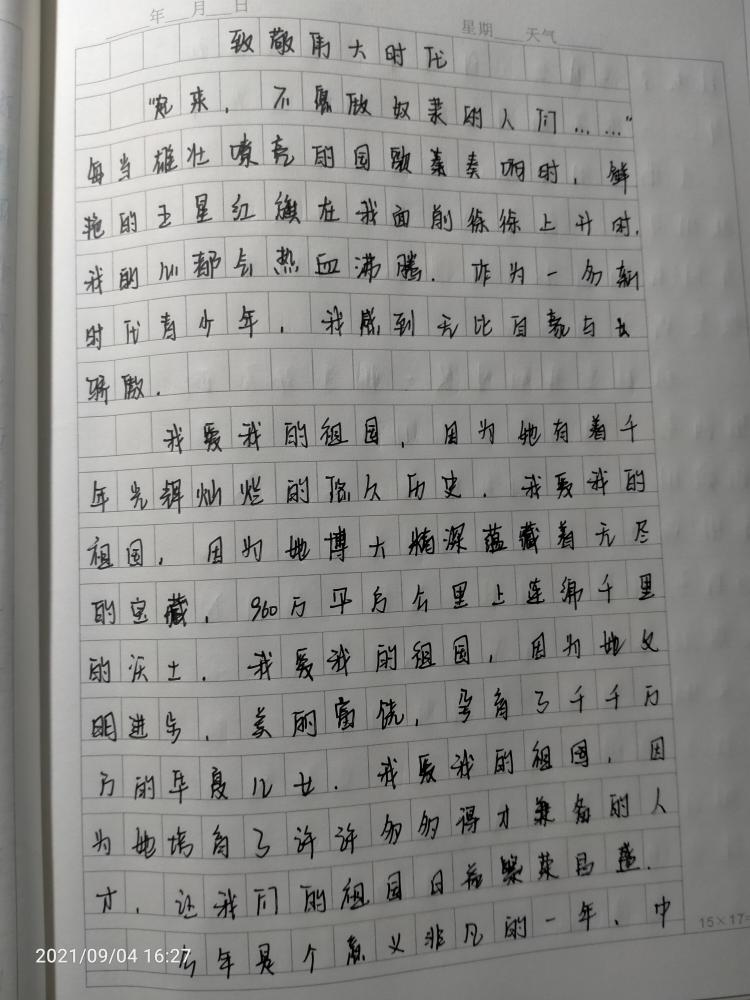 年 月 日
星期 天气
致敬伟大时代
“起来，不愿做奴隶的人们……”
每当雄壮嘹亮的国歌奏奏响时，鲜
艳的五星红旗在我面前徐徐上升时，
我的心都会热血沸腾．作为一名新
时代青少年，我感到无比自豪与
骄傲．
我爱我的祖国，因为她有着千
年光辉灿烂的悠久历史．我爱我的
祖国，因为她博大精深蕴藏着无尽
的宝藏，960万平方公里上连绵千里
的沃土．我爱我的祖国，因为她文
明进步，美丽富饶，孕育了千千万
万的华夏儿女．我爱我的祖国，因
为她培育了许许多多得才兼备的人
才，让我们的祖国日益繁荣昌盛．
今年是个意义非凡的一年，中
15×17=
2021/09/04 16:27